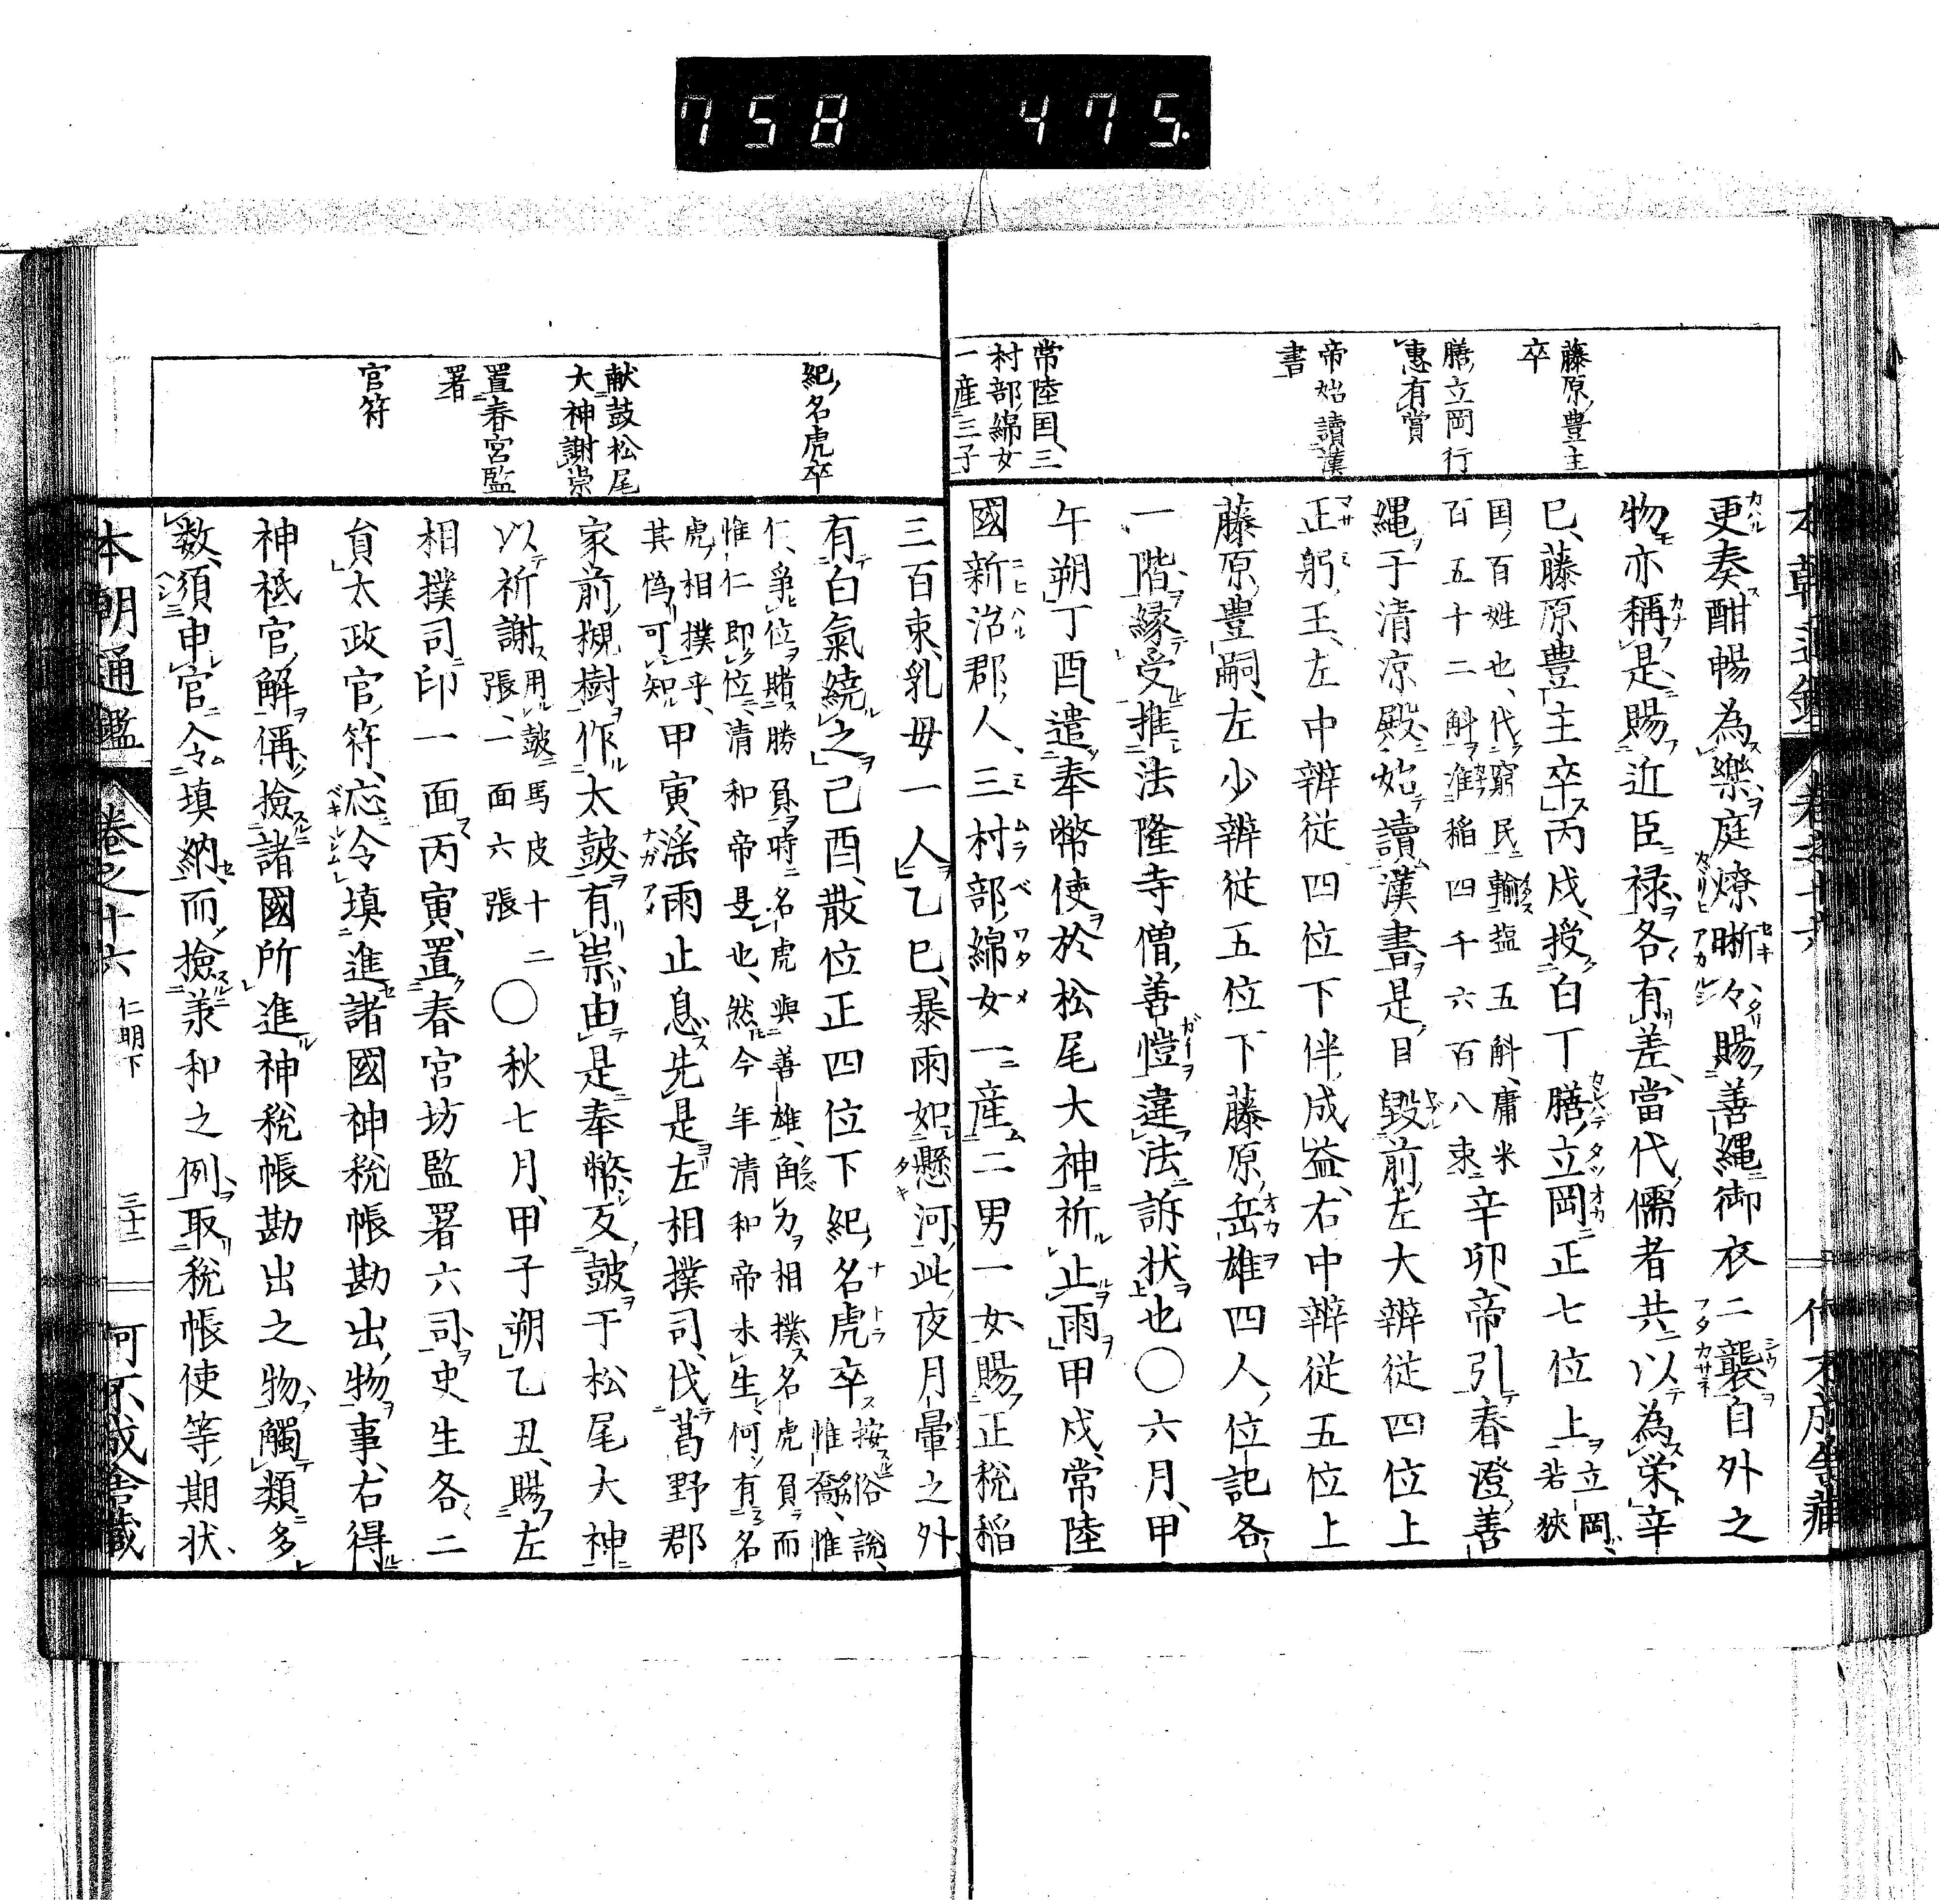 758 475.
本朝通鑑 卷之十六 伺不成舎蔵
藤原豊主
卒
膳立岡行
惠有賞
帝始讀漢
書
常陸国三
村部綿女
一産三子
更奏酣暢為樂庭燎晣々賜善縄御衣二襲自外之
物亦稱是賜近臣禄各有差當代儒者共以為栄辛
巳藤原豊主卒丙戌授白丁膳立岡正七位上立岡若狹
国百姓也代窮民輸塩五斛庸米
百五十二斛准稲四千六百八束辛卯帝引春澄善
縄于清凉殿始讀漢書是日毀前左大辨從四位上
正躬王左中辨從四位下伴成益右中辨從五位上
藤原豊嗣左少辨從五位下藤原岳雄四人位記各
一階縁受推法隆寺僧善愷違法訴状也〇六月甲
午朔丁酉遣奉幣使於松尾大神祈止雨甲戌常陸
國新治郡人三村部綿女一産二男一女賜正税稲
紀名虎卒
献鼓松尾
大神謝祟
置春宮監
署
官符
三百束乳母一人乙巳暴雨如懸河此夜月暈之外
有白氣繞之己酉散位正四位下紀名虎卒按俗說惟喬惟
仁爭位賭勝負時名虎與善雄角力相撲名虎負而
惟仁即位清和帝是也然今年清和帝未生何有名
虎相撲乎
其偽可知甲寅滛雨止息先是左相撲司伐葛野郡
家前槻樹作太鼓有祟由是奉幣及鼓于松尾大神
以祈謝用鼓馬皮十二
張一面六張〇秋七月甲子朔乙丑賜左
相撲司印一面丙寅置春宮坊監署六司史生各二
員太政官符応令填進諸國神税帳勘出物事右得
神祗官解偁撿諸國所進神税帳勘出之物觸類多
数須申官令填納而撿兼和之例取税帳使等期状
本朝通鑑 卷之十六 仁明下 三十二 伺不成舎蔵